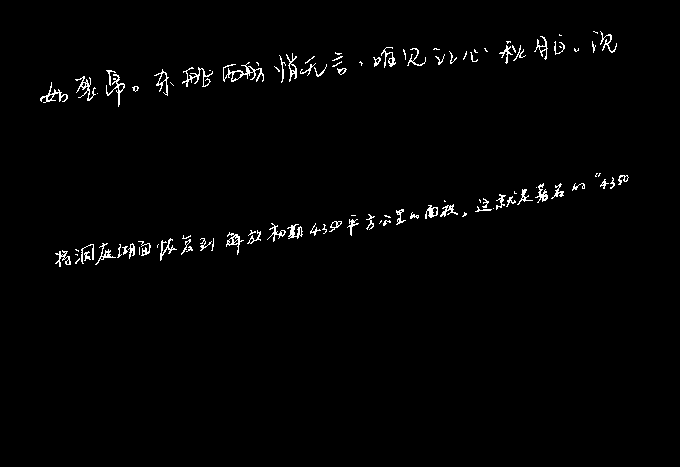 如裂帛。东船西舫悄无言，唯见江心秋月白。沉
将洞庭湖面恢复到解放初期4350平方公里的面积。这就是著名的“4350